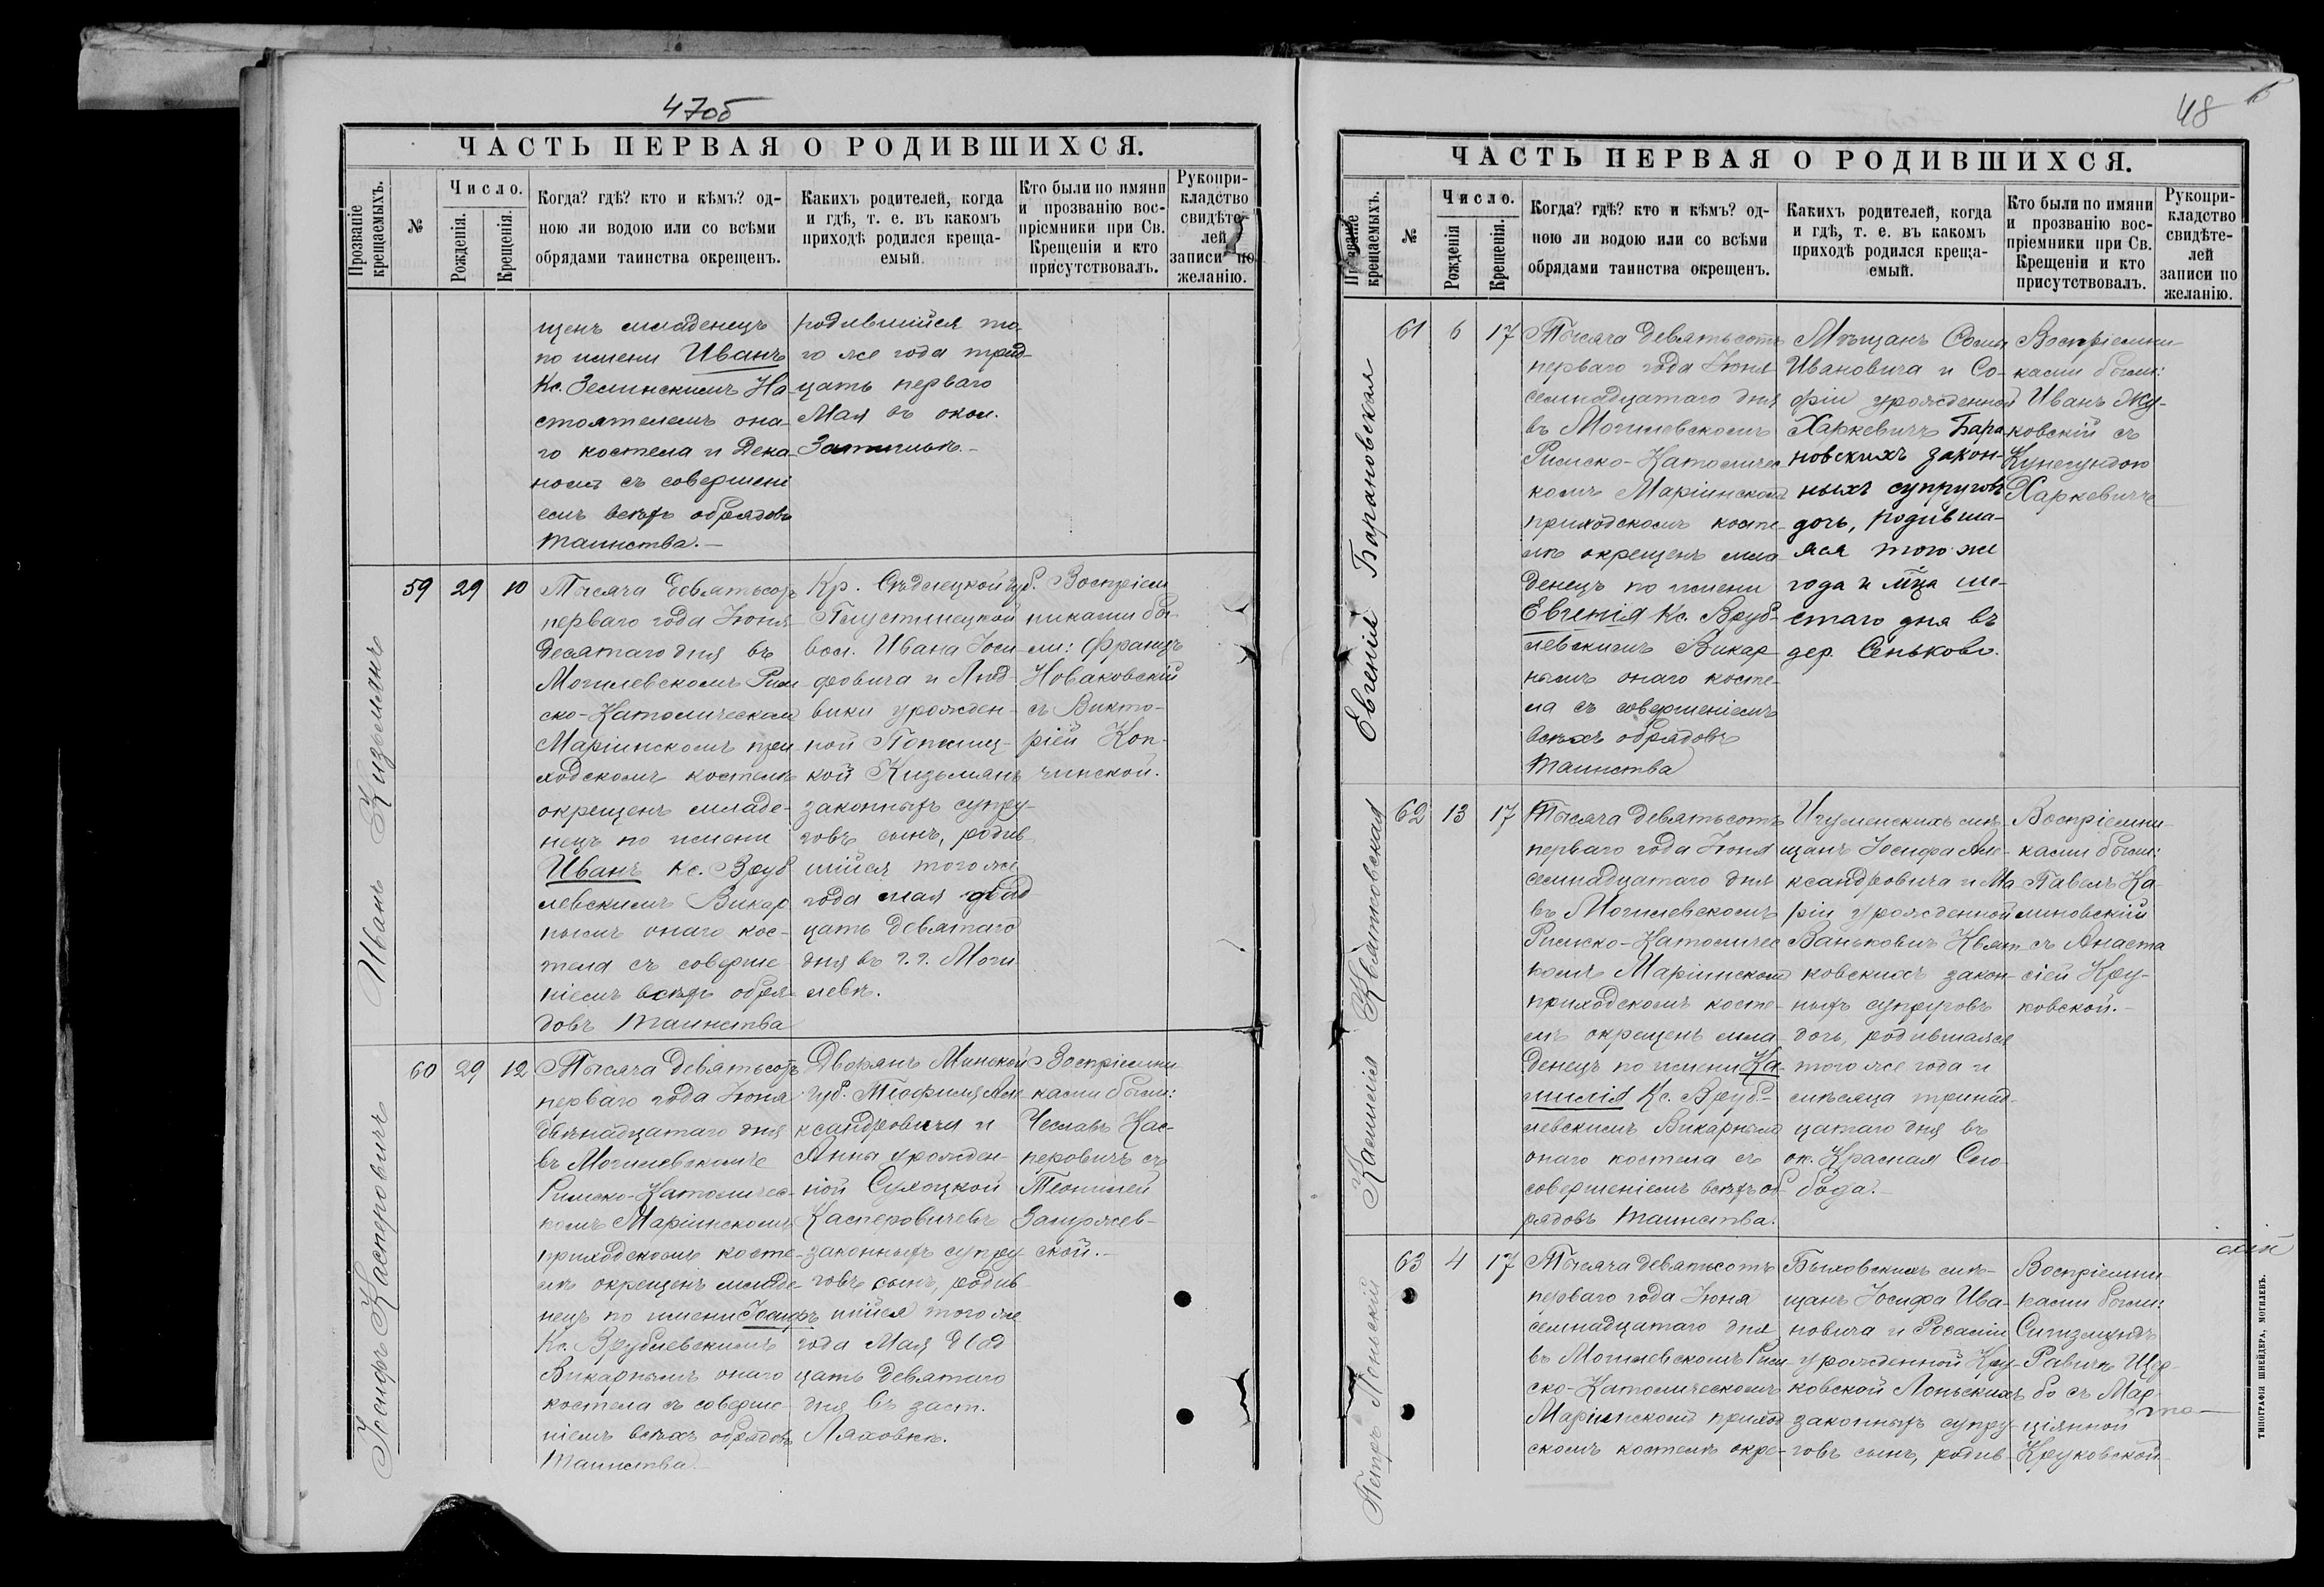 47об
ЧАСТЬ ПЕРВАЯ О РОДИВШИХСЯ.
Прозваніе крещаемыхъ.
№
Число.
Рожденія.
Крещенія.
Когда? гдѣ? кто и кѣмъ? од-
ною ли водою или со всѣми
обрядами таинства окрещенъ.
Какихъ родителей, когда
и гдѣ, т. е. въ какомъ
приходѣ родился креща-
емый.
Кто были по имяни
и прозванію вос-
пріемники при Св.
Крещеніи и кто
присутствовалъ.
Рукопри-
кладство
свидѣте-
лей
записи по
желанію.
щенъ младенецъ
по имени Иванъ
Кс. Землинскимъ На-
стоятелемъ она-
го костела и Дека-
номъ съ совершені
емъ всѣхъ обрядовъ
таинства.—
родившійся то-
го же года трид-
цать перваго
Мая въ окол.
Затишьѣ.—
Иванъ Кизьмянъ
59
29
10
Тысяча девятьсотъ
перваго года Іюня
десятаго дня въ
Могилевскомъ Рим-
ско-Католическомъ
Маріинскомъ при-
ходскомъ костелѣ
окрещенъ младе-
нецъ по имени
Иванъ Кс. Вруб
левскимъ Викар
нымъ онаго кос-
тела съ соверше-
ніемъ всѣхъ обря-
довъ таинства
Кр. Сѣдлецкой губ.
вол. Ивана Іоси-
фовича и Люд-
вики урожден-
ной
кой Кизьмянъ
законныхъ супру-
говъ сынъ, родив-
шійся того же
года мая двад
цать девятаго
дня въ г. г. Моги-
левѣ.
Воспріем
никами бы-
ли: Францъ
Новаковскій
съ Викто-
ріей Коп-
чинской.
Іосифъ Касперовичъ
60
29
12
Тысяча девятьсотъ
перваго года Іюня
двѣнадцатаго дня
въ Могилевскомъ
Римско-Католичес-
комъ Маріинскомъ
приходскомъ косте-
лѣ окрещенъ младе-
нецъ по имени Іосифъ
Кс. Врублевскимъ
Викарнымъ онаго
костела съ соверше-
ніемъ всѣхъ обрядовъ
таинства.—
Дворянъ Минской
губ. Теофила Але-
ксандровича и
Анны урожден-
ной Сухоцкой
Касперовичевъ
законныхъ супру-
говъ сынъ, родив-
шійся того же
года Мая двад
цать девятаго
дня въ заст.
Ляховкѣ.
Воспріемни-
ками были:
Чеславъ Кас-
перовичъ съ
Теофилей
ской.—
48
ЧАСТЬ ПЕРВАЯ О РОДИВШИХСЯ.
Прозваніе крещаемыхъ.
№
Число.
Рожденія
Крещенія.
Когда? гдѣ? кто и кѣмъ? од-
ною ли водою или со всѣми
обрядами таинства окрещенъ.
Какихъ родителей, когда
и гдѣ, т. е. въ какомъ
приходѣ родился креща-
емый.
Кто были по имяни
и прозванію вос-
пріемники при Св.
Крещеніи и кто
присутствовалъ.
Рукопри-
кладство
свидѣте-
лей
записи по
желанію.
Евгенія Барановская
61
6
17
Тысяча девятьсотъ
перваго года Іюня
семнадцатаго дня
въ Могилевскомъ
Римско-Католичес
комъ Маріинскомъ
приходскомъ косте-
лѣ окрещенъ мла
денецъ по имени
Евгенія Кс. Вруб-
левскимъ Викар
нымъ онаго косте-
ла съ совершеніемъ
всѣхъ обрядовъ
таинства
Мѣщанъ
Ивановича и Со-
фіи урожденной
Харкевичъ Бара
новскихъ закон-
ныхъ супруговъ
дочь, родивша-
яся того же
года и м-ца ше-
стаго дня въ
дер. Сеньково.
Воспріемни-
ками были:
Иванъ Жу-
ковскій съ
Кунегундою
Харкевичъ
Камилія Квятковская
62
13
17
Тысяча девятьсотъ
перваго года Іюня
семнадцатаго дня
въ Могилевскомъ
Римско-Католичес
комъ Маріинскомъ
приходскомъ косте-
лѣ окрещенъ мла-
денецъ по имени Ка-
милія Кс. Вруб-
левскимъ Викарнымъ
онаго костела съ
совершеніемъ всѣхъ об
рядовъ таинства.
Игуменскихъ мѣ-
щанъ Іосифа Але-
ксандровича и Ма-
ріи урожденной
Ваньковичъ Квят-
ковскихъ закон-
ныхъ супруговъ
дочь, родившаяся
того же года и
мѣсяца тринад-
цатаго дня въ
ок. Красная Сло-
бода.—
Воспріемни-
ками были:
Павелъ Ка-
линовскій
съ Анаста
сіей Кру-
ковской.—
Петръ Лоньскій
63
4
17
Тысяча девятьсотъ
перваго года Іюня
семнадцатаго дня
въ Могилевскомъ Рим-
ско-Католическомъ
Маріинскомъ приход
скомъ костелѣ окре-
Быховскихъ мѣ-
щанъ Іосифа Ива-
новича и Розаліи
урожденной Кру-
ковской Лоньскихъ
законныхъ супру-
говъ сынъ, родив-
Воспріемни
ками были:
Сигизмундъ
Равичъ Щер-
бо съ Мар-
ціянной
Круковской
ТИПОГРАФІЯ ШНЕЙДЕРА, МОГИЛЕВЪ.